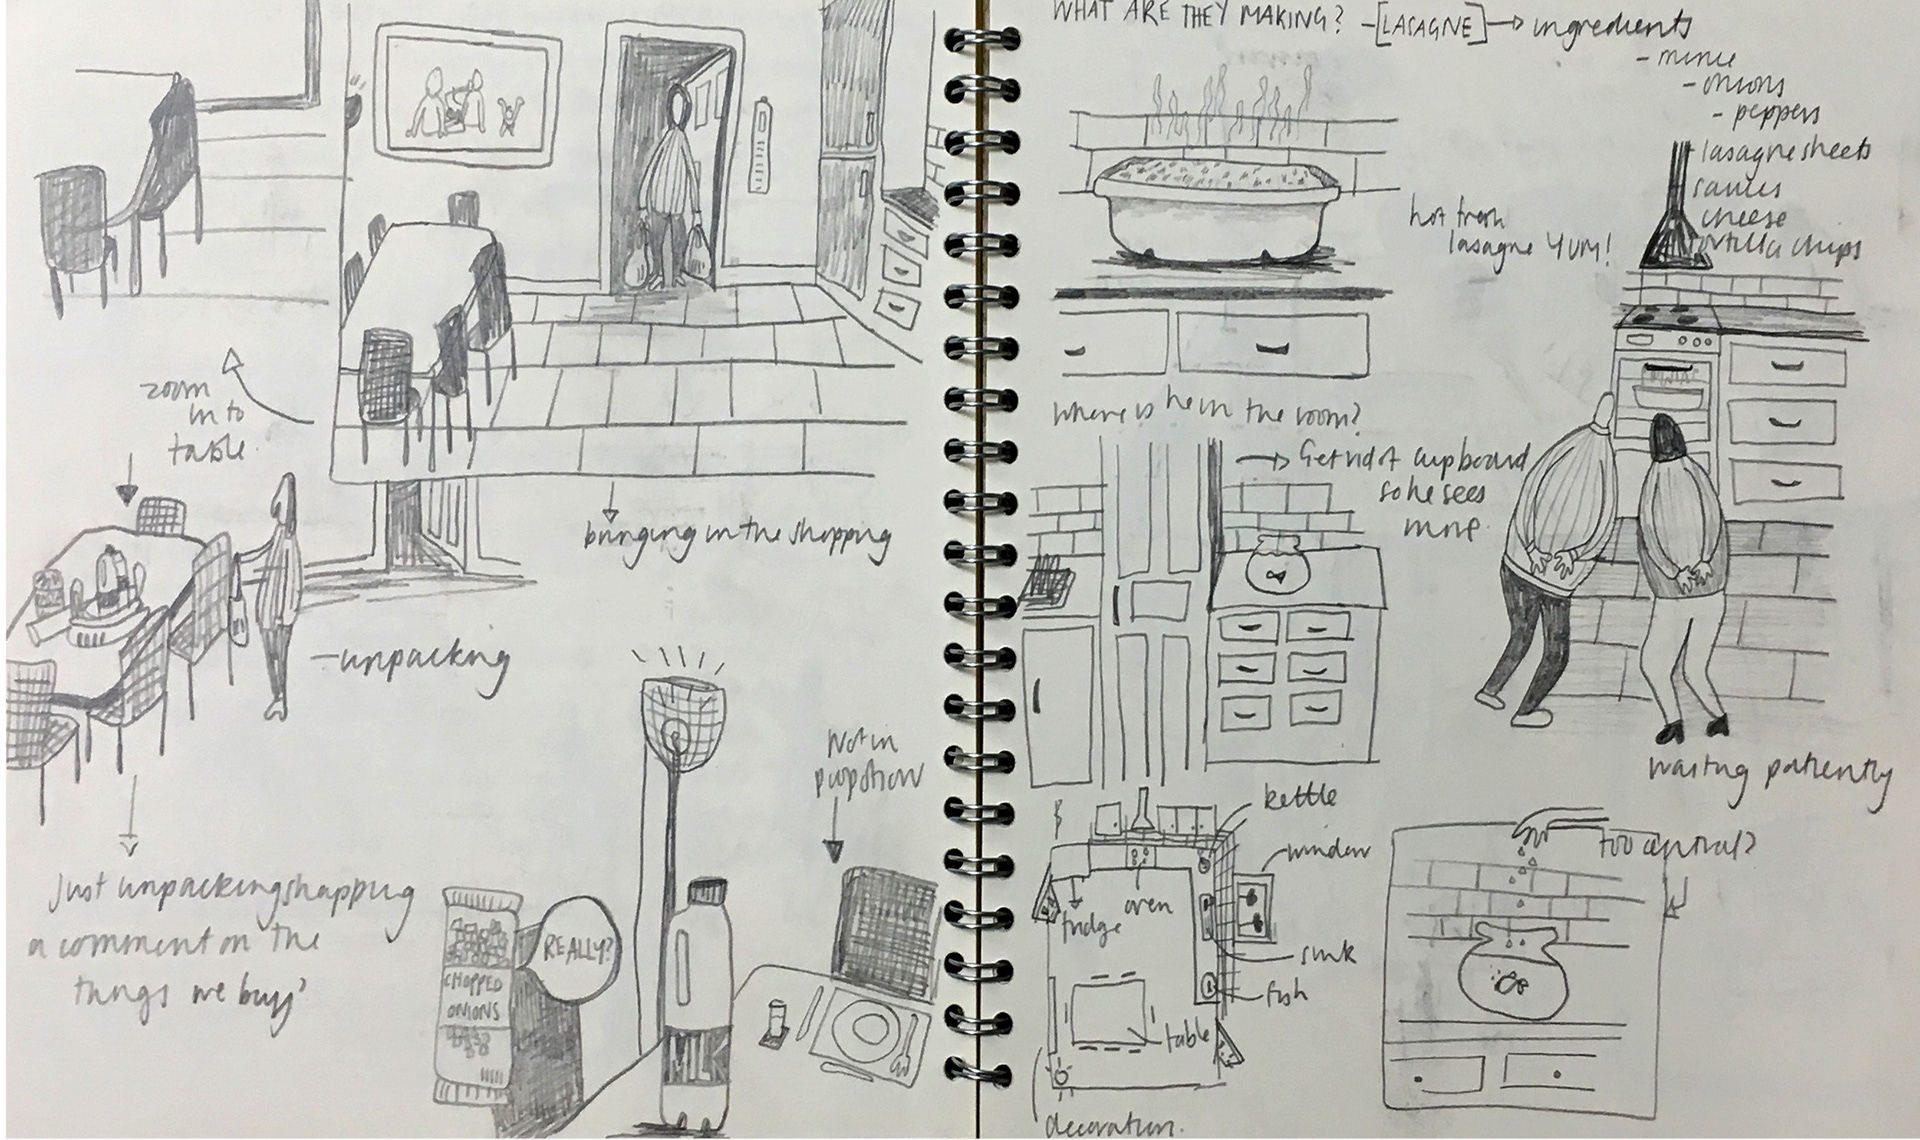 zoom
in to
table
bringing in the shopping
-unpacking
Not in
proportion
Just unpacking shopping
a comment on the
things we buy?
REALLY?
CHOPPED
ONIONS
MILK
WHAT ARE THEY MAKING? -[LASAGNE]→ ingredients
- mince
- onions
- peppers
- lasagne sheets
sauces
cheese
tortilla chips
hot fresh
lasagne YUM!
Where is he in the room?
→ Get rid of cupboard
so he sees
more.
waiting patiently
kettle
window
fridge
oven
sink
fish
table
decoration.
too central?